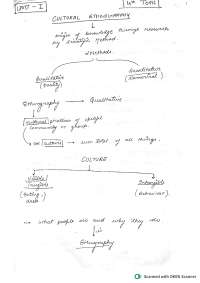 UNIT - I
IVth Term
CULTURAL ETHNOGRAPHY
of knowledge through research
by scientific method.
Methods
Qualitative
(Quality)
Quantitative
(Numerical)
Ethnography → Qualitative
Cultural of
community or group
Culture → sum total of all things.
CULTURE
Visible
Tangible
(Eating,
dress
Intangible
(behaviour)
what people do and why they do
Ethnography
Scanned with OKEN Scanner